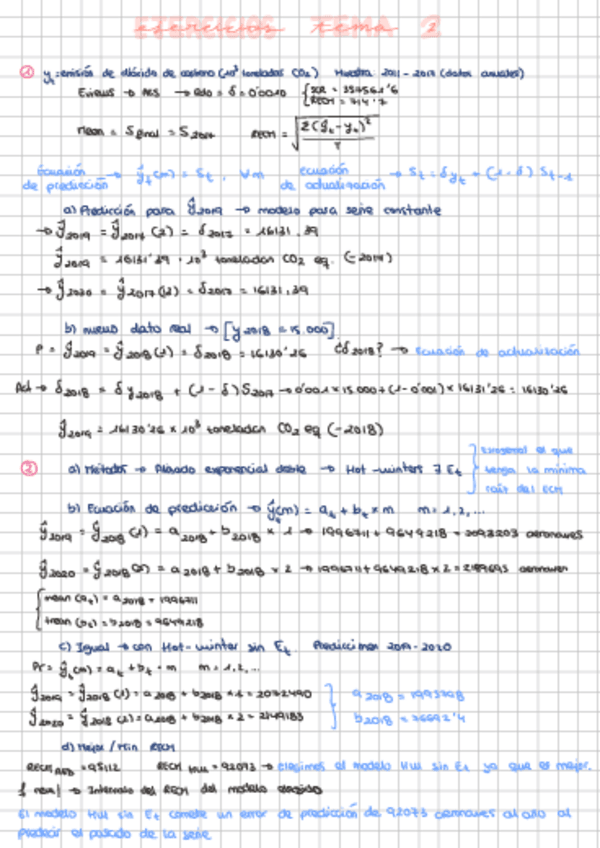 EJERCICIOS tema 2
① yₜ: emisión de dióxido de carbono (10³ toneladas CO₂) Muestra 2011 - 2017 (datos anuales)
Eviews → AES → δ = 0'0010 { SCR = 3575612'6
RECM = 714'7
Mean = S final = S₂₀₁₇ RECM = √ Σ(ŷₜ - yₜ)² / T
Ecuación de predicción → ŷₜ(m) = Sₜ, ∀m ecuación de actualización → Sₜ = δyₜ + (1 - δ) Sₜ₋₁
a) Predicción para ŷ₂₀₁₉ → modelo para serie constante
→ ŷ₂₀₁₉ = ŷ₂₀₁₇ (2) = S₂₀₁₇ = 16131,39
ŷ₂₀₁₉ = 16131'39 · 10³ toneladas CO₂ eq. (-2017)
→ ŷ₂₀₂₀ = ŷ₂₀₁₇(3) = S₂₀₁₇ = 16131,39
b) nuevo dato real → [y₂₀₁₈ = 15.000]
P = ŷ₂₀₁₉ = ŷ₂₀₁₈(1) = S₂₀₁₈ = 16130'26 ¿S₂₀₁₈? → Ecuación de actualización
Act → S₂₀₁₈ = δ y₂₀₁₈ + (1 - δ) S₂₀₁₇ → 0'001 × 15.000 + (1 - 0'001) × 16131'39 = 16130'26
ŷ₂₀₁₉ = 16130'26 × 10³ toneladas CO₂ eq (-2018)
② a) Métodos → Alisado exponencial doble → Holt-winters Eₜ } que tenga la mínima raíz del ECM
b) Ecuación de predicción → ŷₜ(m) = aₜ + bₜ × m m = 1, 2, ...
ŷ₂₀₁₉ = ŷ₂₀₁₈ (1) = a₂₀₁₈ + b₂₀₁₈ × 1 → 1996711 + 96492'18 = 2093203 aeronaves
ŷ₂₀₂₀ = ŷ₂₀₁₈(2) = a₂₀₁₈ + b₂₀₁₈ × 2 → 1996711 + 96492'18 × 2 = 2189695 aeronaves
{ mean (aₜ) = a₂₀₁₈ = 1996711
trean (bₜ) = b₂₀₁₈ = 96492'18
c) Igual → con Holt-winter sin Eₜ Predicciones 2019-2020
Pr = ŷₜ(m) = aₜ + bₜ · m m = 1, 2, ...
ŷ₂₀₁₉ = ŷ₂₀₁₈ (1) = a₂₀₁₈ + b₂₀₁₈ × 1 = 2072490 } a₂₀₁₈ = 1995798
ŷ₂₀₂₀ = ŷ₂₀₁₈ (2) = a₂₀₁₈ + b₂₀₁₈ × 2 = 2149183 b₂₀₁₈ = 76692'4
d) Mejor / Min RECM
RECM AED = 95112 RECM HW = 92073 → elegimos el modelo HW sin Eₜ ya que es mejor.
→ Intervalo del RECM del modelo elegido
El modelo HW sin Eₜ comete un error de predicción de 92073 aeronaves al año al
predecir el pasado de la serie